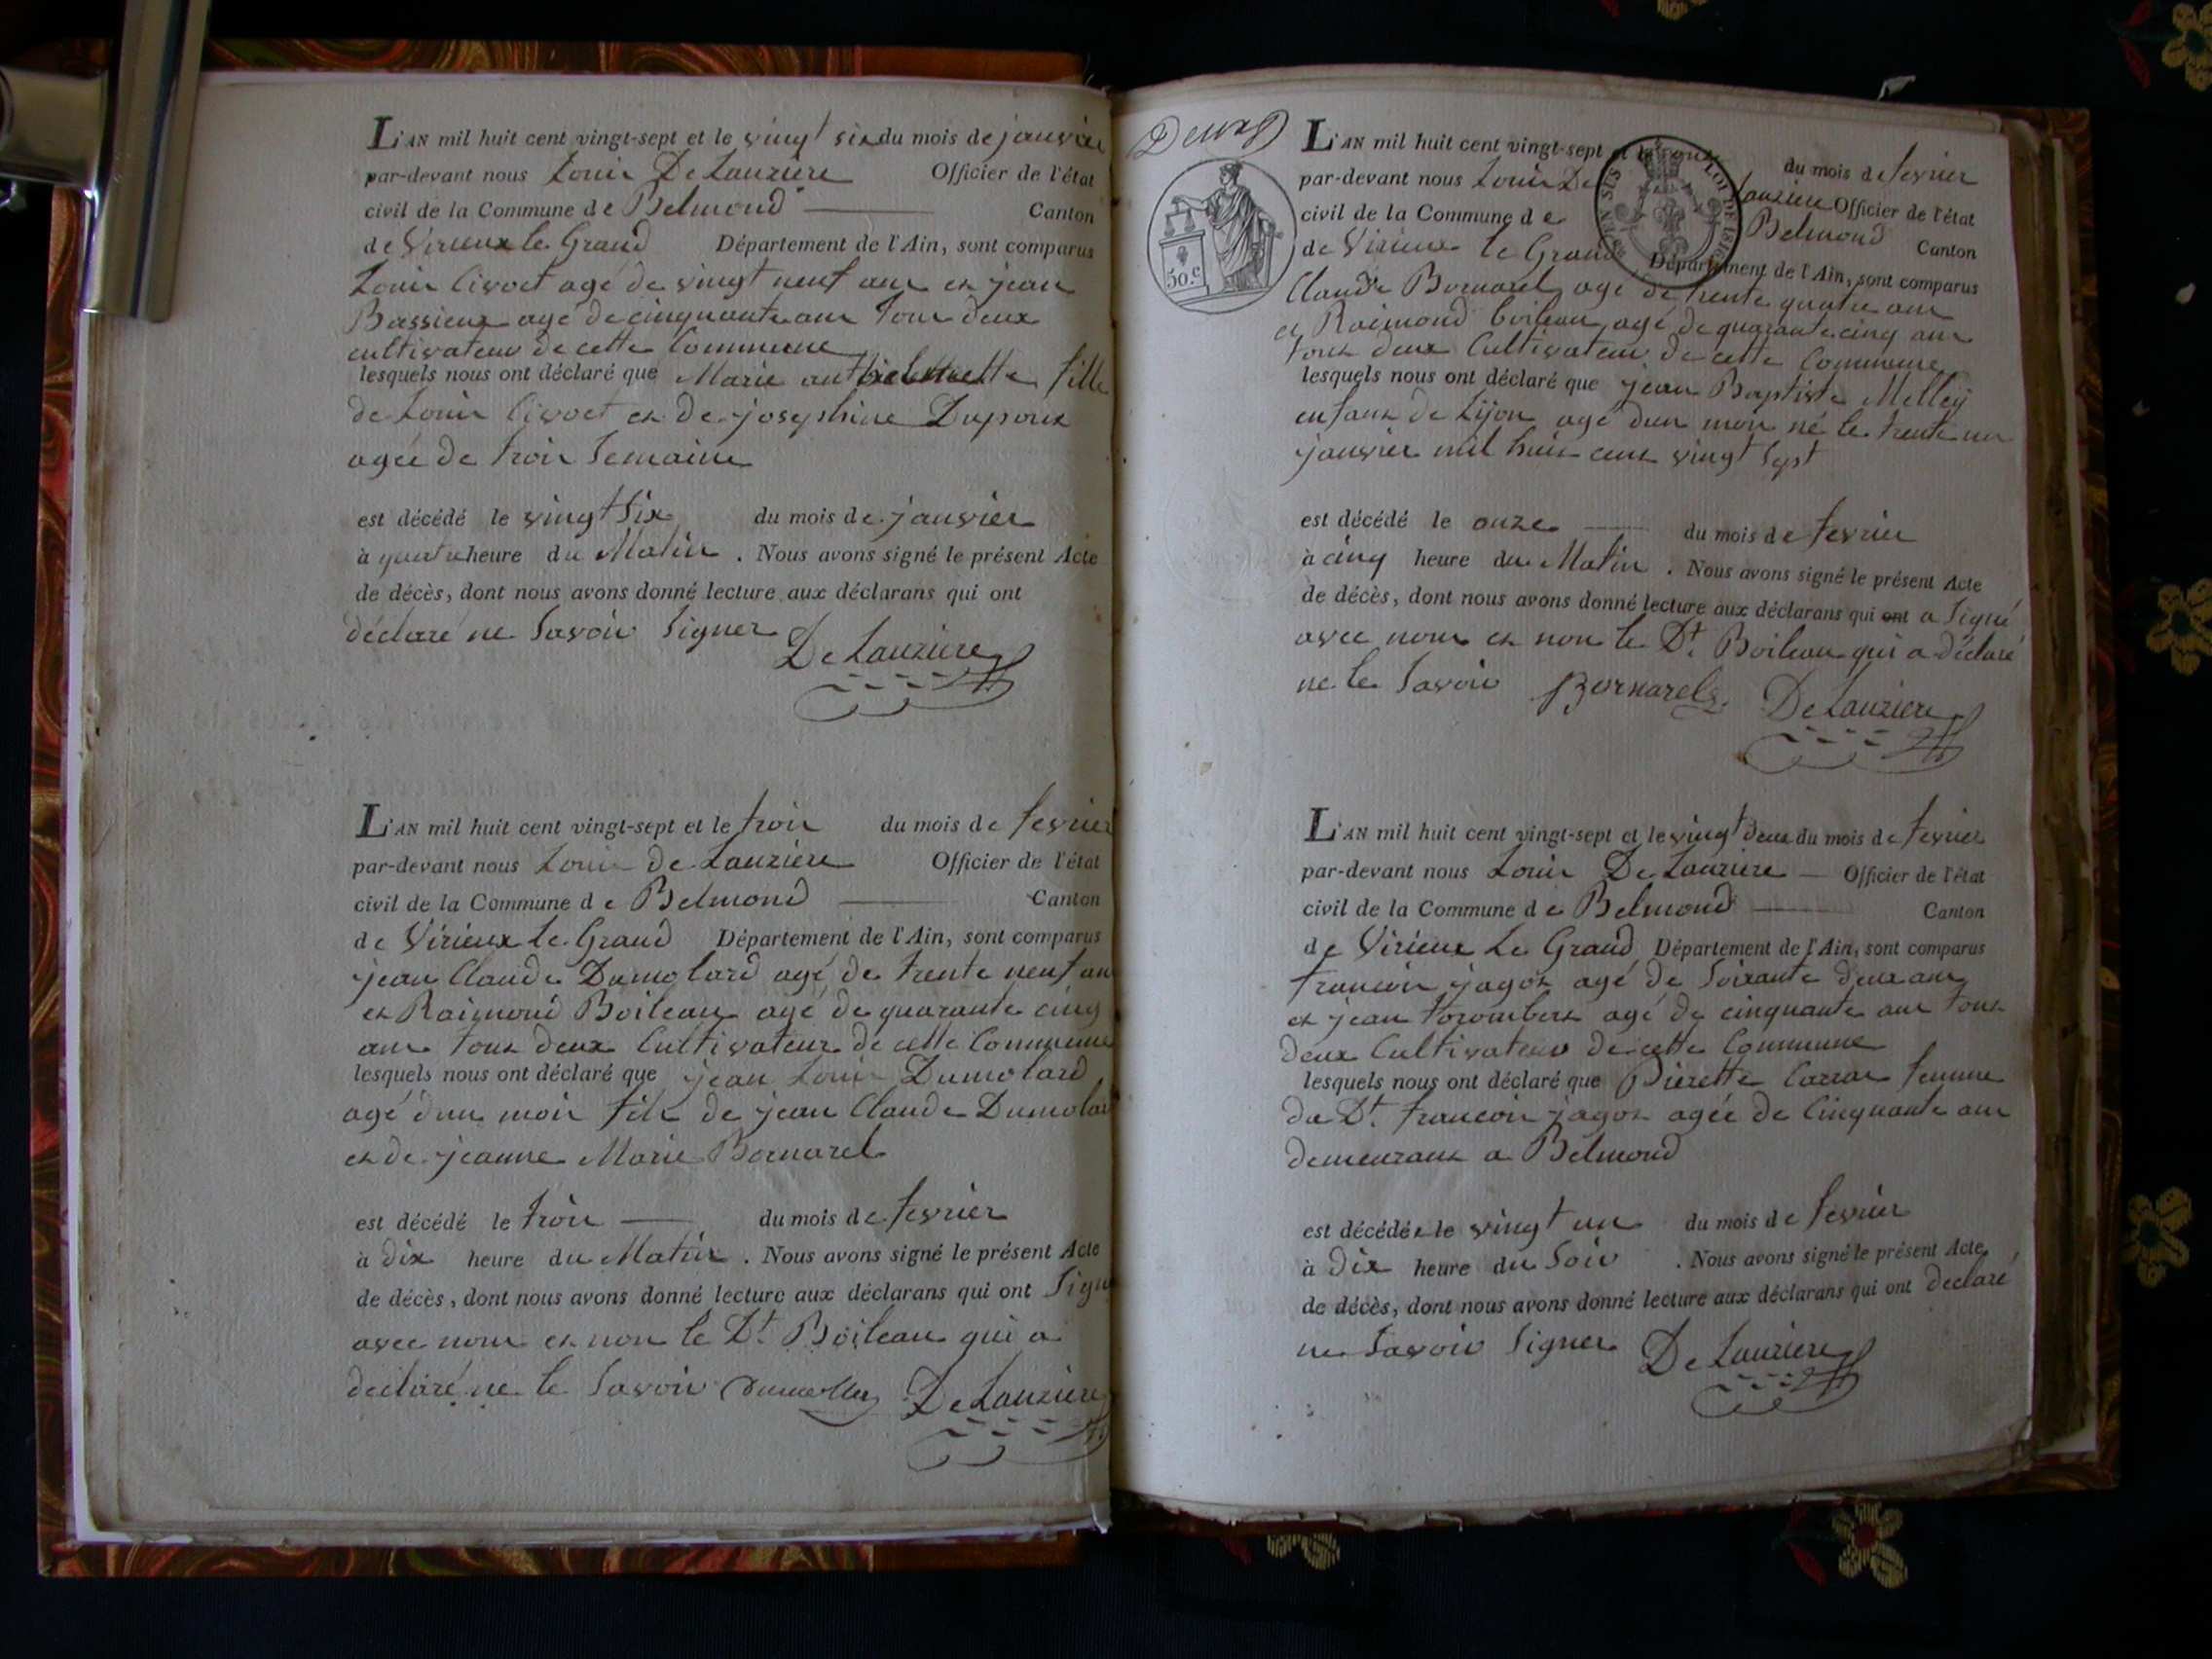 L'AN mil huit cent vingt-sept et le vingt six du mois de janvier
par-devant nous Louis DeLauziere Officier de l'état
civil de la Commune de Belmond Canton
de Virieux le Grand Département de l'Ain, sont comparus
Louis Civoct agé de vingt neuf ans et jean
Bassieux agé de cinquante ans Tous deux
cultivateur de cette Commune
lesquels nous ont déclaré que Marie fille
de Louis Civoct et de josephine Dupont
agée de trois Semaine
est décédé le vingt Six du mois de janvier
à quatre heure du Matin. Nous avons signé le présent Acte
de décès, dont nous avons donné lecture aux déclarans qui ont
déclaré ne Savoir Signer
DeLauziere
L'AN mil huit cent vingt-sept et le trois du mois de fevrier
par-devant nous Louis de Lauziere Officier de l'état
civil de la Commune de Belmond Canton
de Virieux le Grand Département de l'Ain, sont comparus
jean Claude Dumolard agé de trente neuf an
et Raimond Boileau agé de quarante cinq
ans tous deux Cultivateur de cette Commune
lesquels nous ont déclaré que jean Louis Dumolard
agé dun mois fils de jean Claude Dumolar
et de jeanne Marie Bornarel
est décédé le trois du mois de fevrier
à dix heure du Matin. Nous avons signé le présent Acte
de décès, dont nous avons donné lecture aux déclarans qui ont Signé
avec nous et non le Dt. Boileau qui a
déclaré ne le Savoir DeLauziere
L'AN mil huit cent vingt-sept et le onze du mois de fevrier
par-devant nous Louis De Lauziere Officier de l'état
civil de la Commune de Belmond Canton
de Virieux le Grand Département de l'Ain, sont comparus
Claude Bornarel agé de trente quatre ans
et Raimond boileau agé de quarante cinq ans
tous deux Cultivateur de cette Commune
lesquels nous ont déclaré que jean Baptiste Melley
enfant de Lyon agé dun mois né le trente un
janvier mil huit cent vingt Sept
est décédé le onze du mois de fevrier
à cinq heure du Matin. Nous avons signé le présent Acte
de décès, dont nous avons donné lecture aux déclarans qui ont a Signé
avec nous et non le Dt. Boileau qui a déclaré
ne le Savoir Bornarel DeLauziere
50.c
LOI DE 1816
EN SUS
L'AN mil huit cent vingt-sept et le vingt deux du mois de fevrier
par-devant nous Louis DeLauziere Officier de l'état
civil de la Commune de Belmond Canton
de Virieux Le Grand Département de l'Ain, sont comparus
francois jagot agé de Soixante deux ans
et jean torombert agé de cinquante ans tous
deux Cultivateur de cette Commune
lesquels nous ont déclaré que Pierette Carrar femme
du Dt. francois jagot agée de Cinquante ans
demeurant a Belmond
est décédée le vingt un du mois de fevrier
à Dix heure du Soir. Nous avons signé le présent Acte
de décès, dont nous avons donné lecture aux déclarans qui ont declaré
ne Savoir Signer DeLauziere